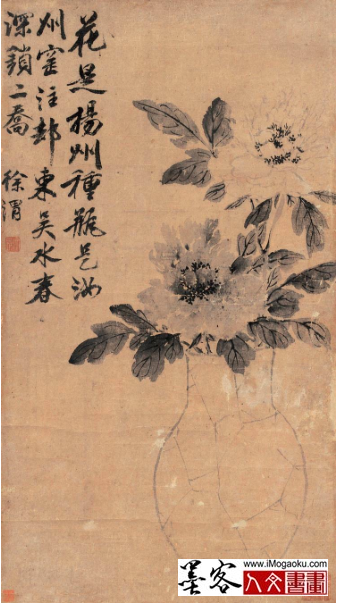 花是楊州種瓶是汝
州窰注却東吳水春
深鎖二喬
徐渭
墨客
www.iMogaoku.com
人文書畫